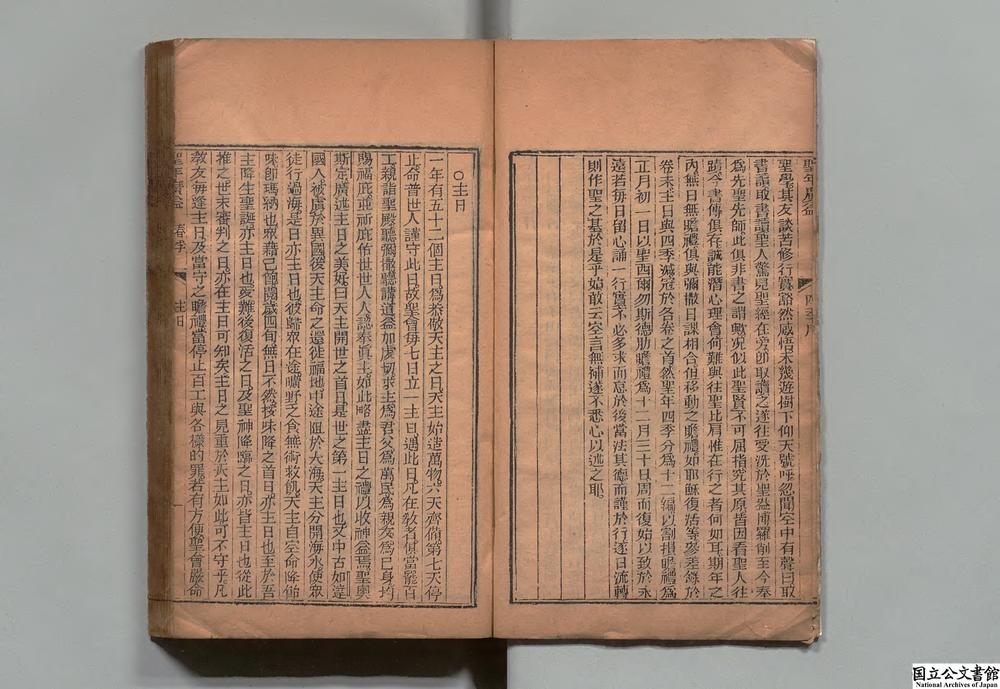 聖年廣益
聖學其友談苦修行實豁然感悟未幾遊樹下仰天號呼忽聞空中有聲曰取
書讀取書讀聖人驚見聖經在旁卽取讀之遂往受洗於聖盎博羅削至今奉
爲先聖先師此俱非書之謂歟况似此聖賢不可屈指究其原皆因看聖人往
蹟今書傳俱存誠能潛心理會何難與往聖比肩惟在行之者何如耳期年之
內無日無瞻禮俱與彌撒日課相合但移動之瞻禮如耶穌復活等參差錄於
卷末主日與四季減冠於各卷之首然聖年四季分爲十二編以割損瞻禮爲
正月初一日以聖西爾勿斯德肋瞻禮爲十二月三十日周而復始以致於永
遠若每日留心誦一行實不必多求而怠於後當法其德而謹於行逐日流轉
則作聖之基於是乎始敢云空言無補遂不悉心以述之耶
○主日
一年有五十二個主日爲恭敬天主之日天主始造萬物六天齊備第七天停
止命普世人謹守此日故聖會每七日立一主日遇此日凡在敎者俱當罷百
工親詣聖殿聽彌撒聽講道益加虔切求主爲君父爲萬民爲親友爲己身均
賜福庇並祈庇佑世世人人認奉眞主如此略盡主日之禮以收神益焉聖奧
斯定廣述主日之美妙曰天主開世之首日是世之第一主日也又中古如達
國人被虜於異國後天主命之還徙福地中途阻於大海天主分開海水使衆
徒行過海是日亦主日也彼歸衆在途曠野乏食無術救飢天主自空命降飴
味卽瑪納也衆藉已飽閱歲四旬無日不然按味降之首日亦主日也至於吾
主降生聖誕亦主日也受難後復活之日及聖神降臨之日亦皆主日也從此
推之世末審判之日亦在主日可知矣主日之見重於天主如此可不守乎凡
敎友每逢主日及當守之瞻禮當停止百工與各樣的罪若有方便聖會嚴命
聖年廣益 春季 主日 一
国立公文書館
National Archives of Japan